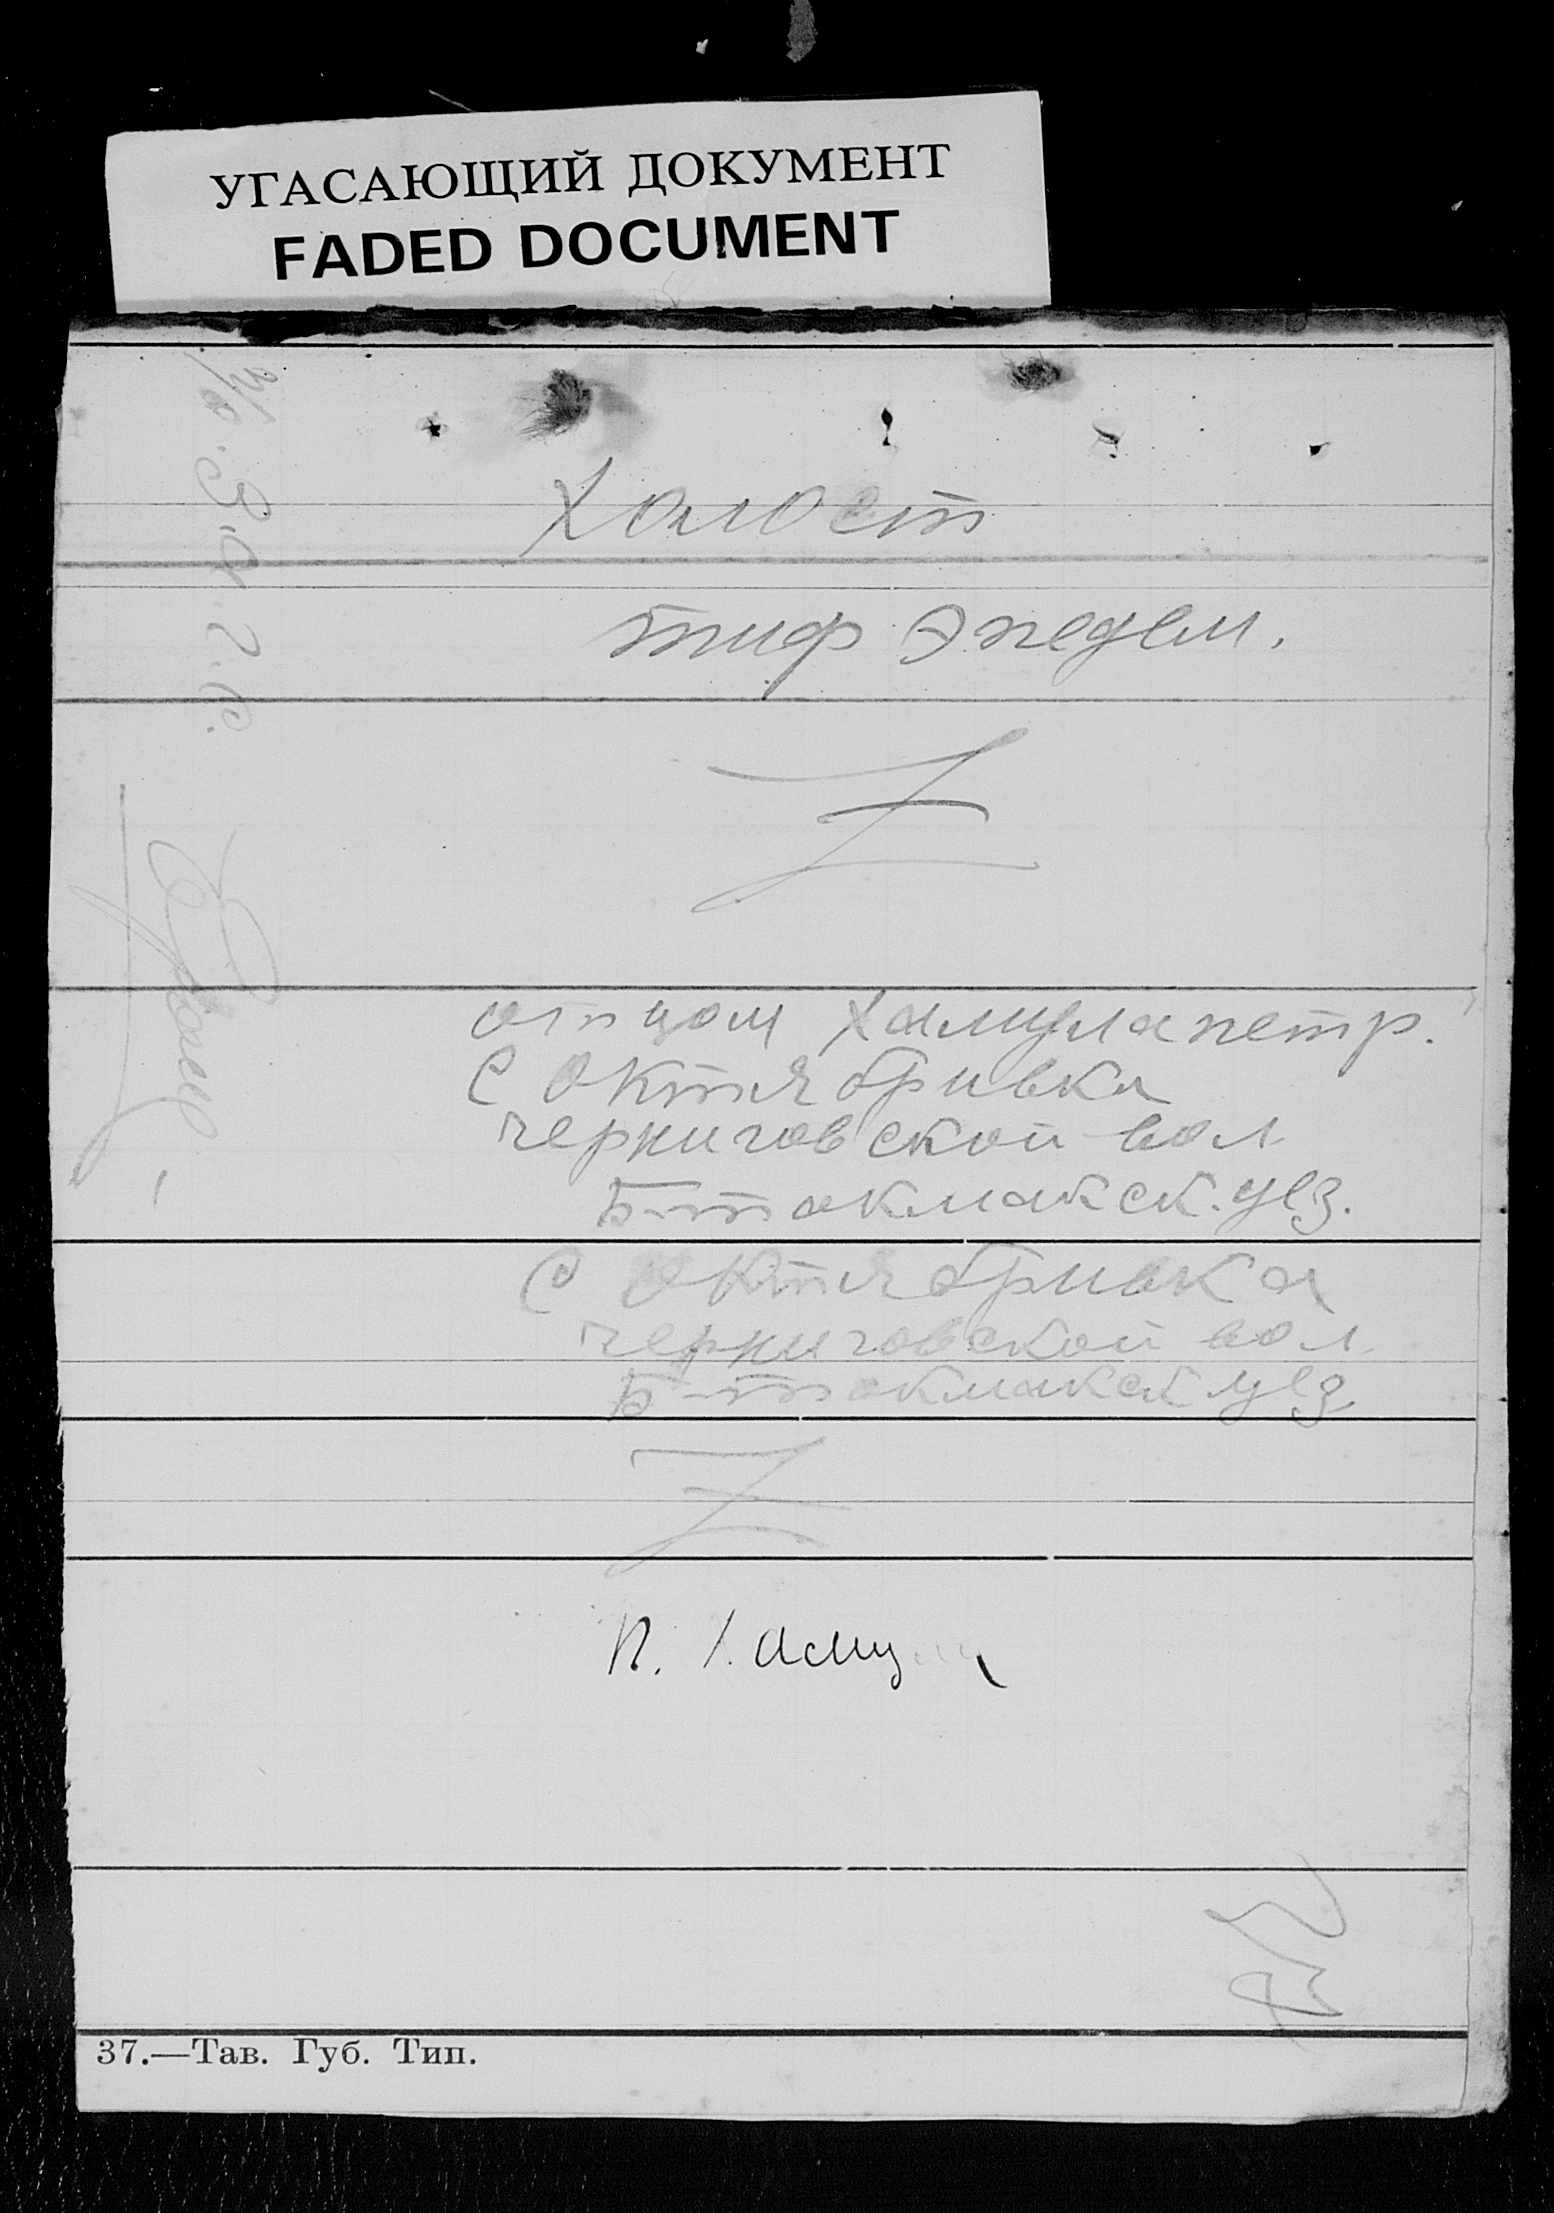 УГАСАЮЩИЙ ДОКУМЕНТ
FADED DOCUMENT
Холост
тиф эпедем.
Z
отцом Хамула петр.
с Октябривка
черниговской вол
Б-токмакск. уез.
с Октябривка
черниговской вол
Б-токмакск уез
Z
П. Хамула
37.—Тав. Губ. Тип.